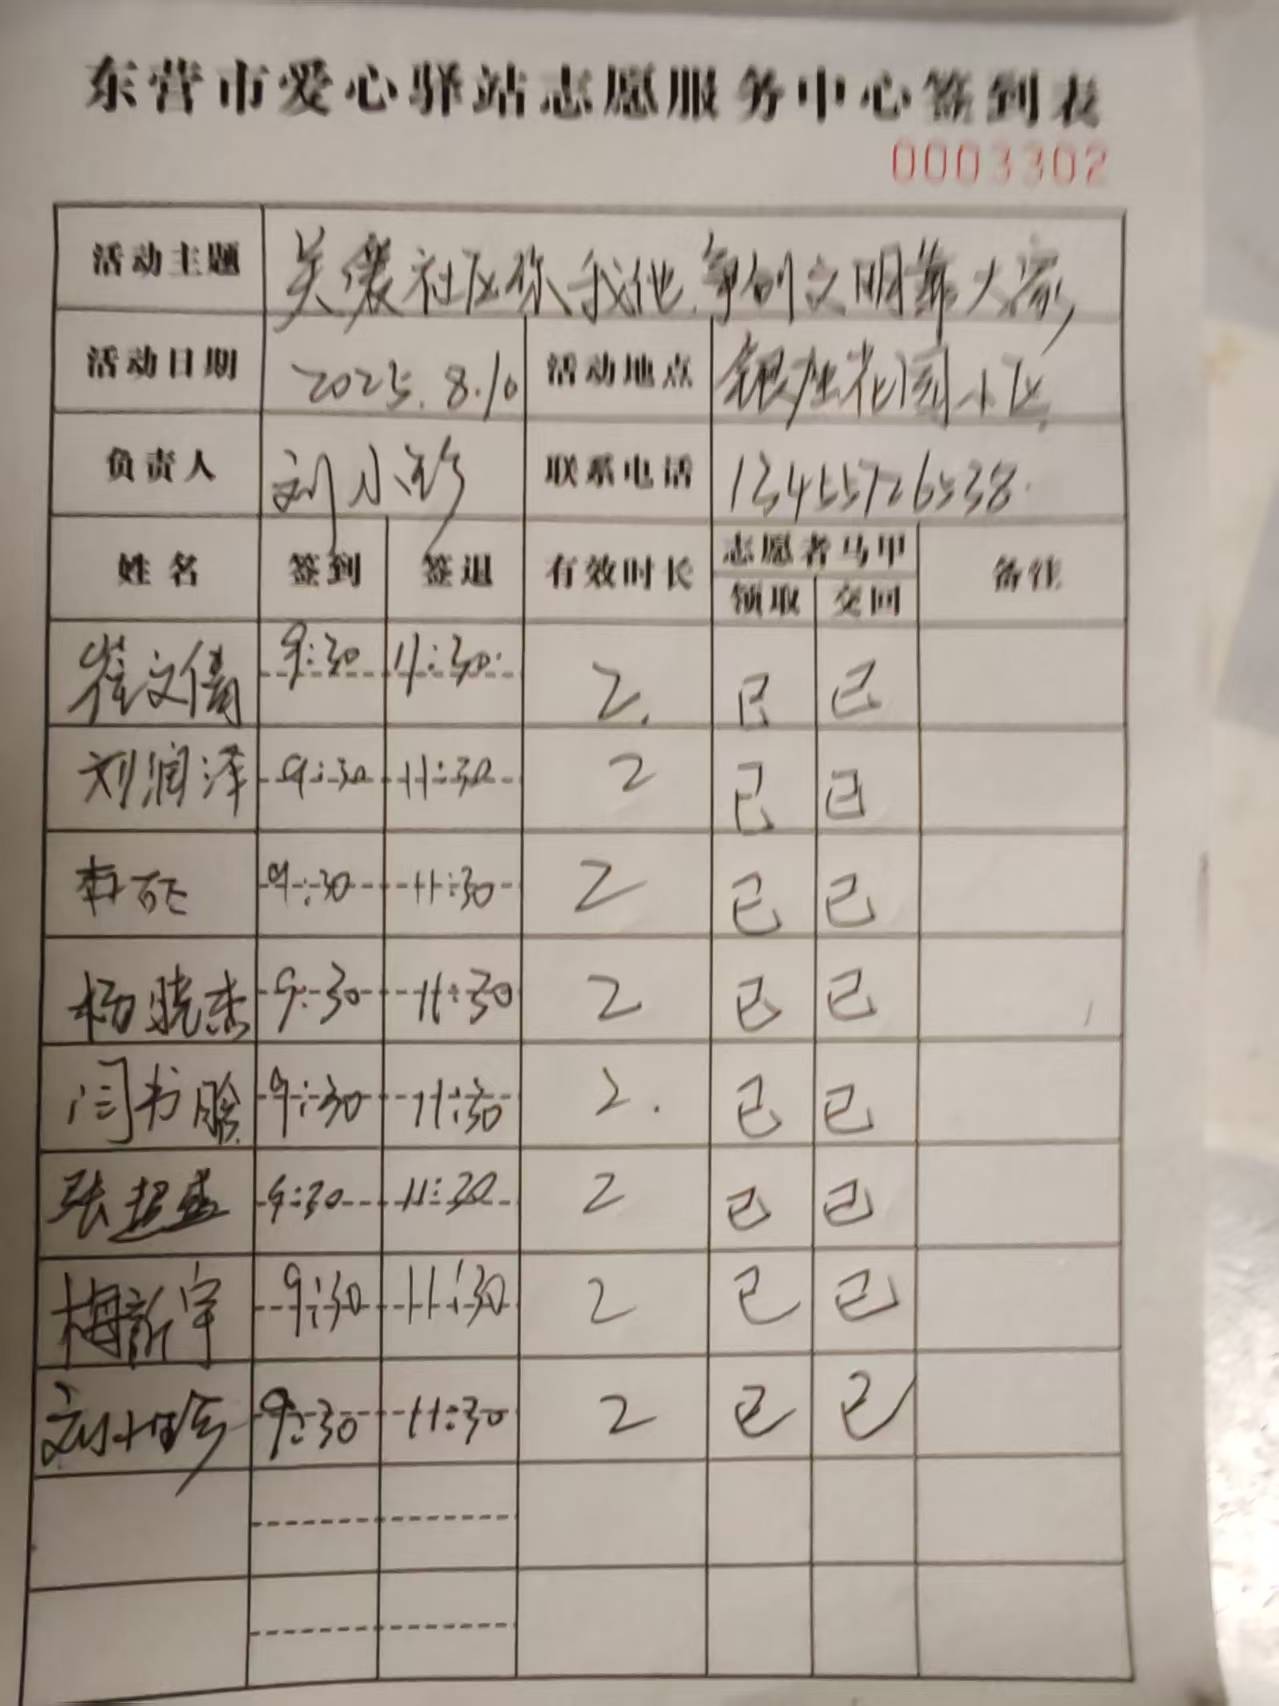 东营市爱心驿站志愿服务中心签到表
0003302
活动主题 关爱社区你我他,争创文明靠大家
活动日期 2025.8.10 活动地点 银座花园小区
负责人 刘小珍 联系电话 13455726538
姓名 签到 签退 有效时长 志愿者马甲 备注
领取 交回
崔文倩 9:30 11:30 2 已 已
刘润泽 9:30 11:30 2 已 已
9:30 11:30 2 已 已
杨晓杰 9:30 11:30 2 已 已
闫书 9:30 11:30 2 已 已
张超盛 9:30 11:30 2 已 已
梅新宇 9:30 11:30 2 已 已
刘小珍 9:30 11:30 2 已 已